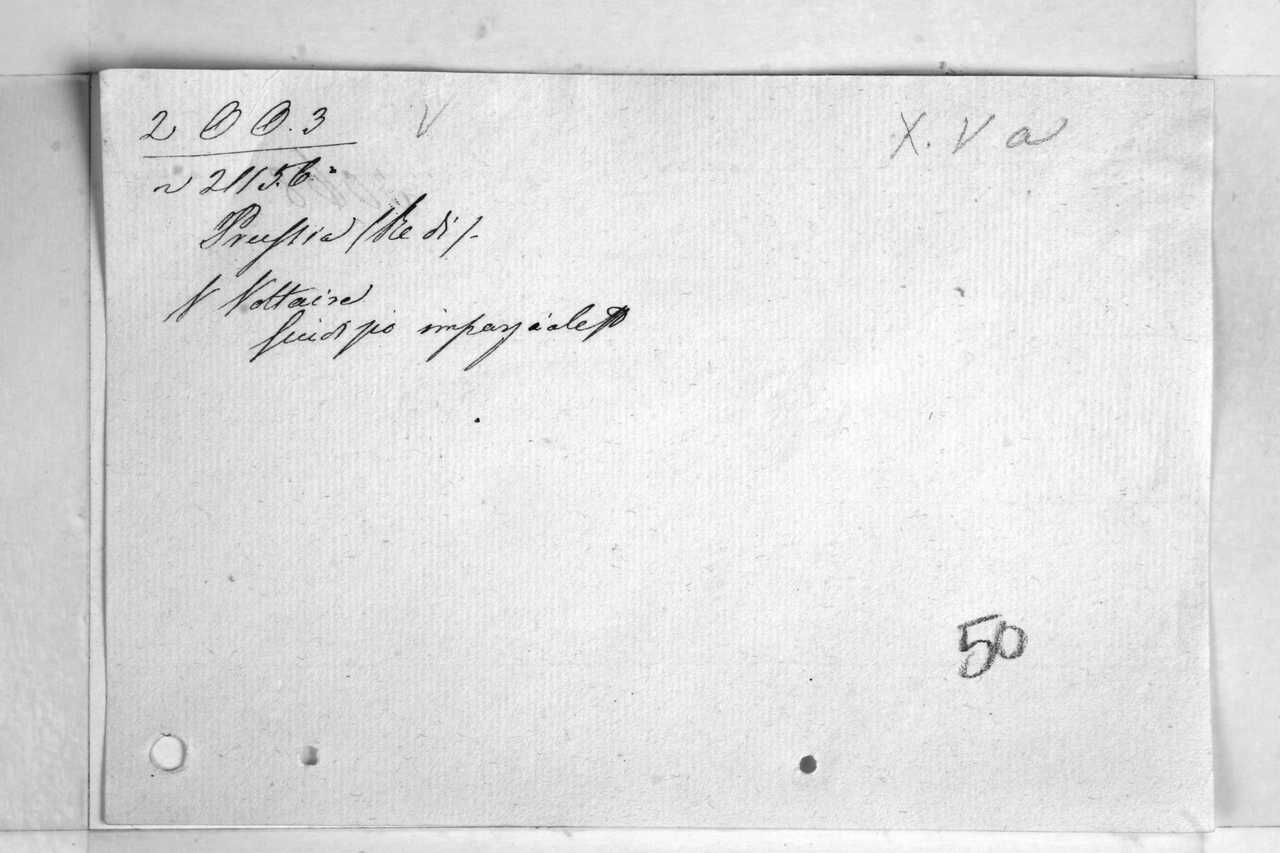 2 O O. 3 V X. V a
~ 2115.6.
Prussia (Re di).
V Voltaire
Giudizio imparziale
50